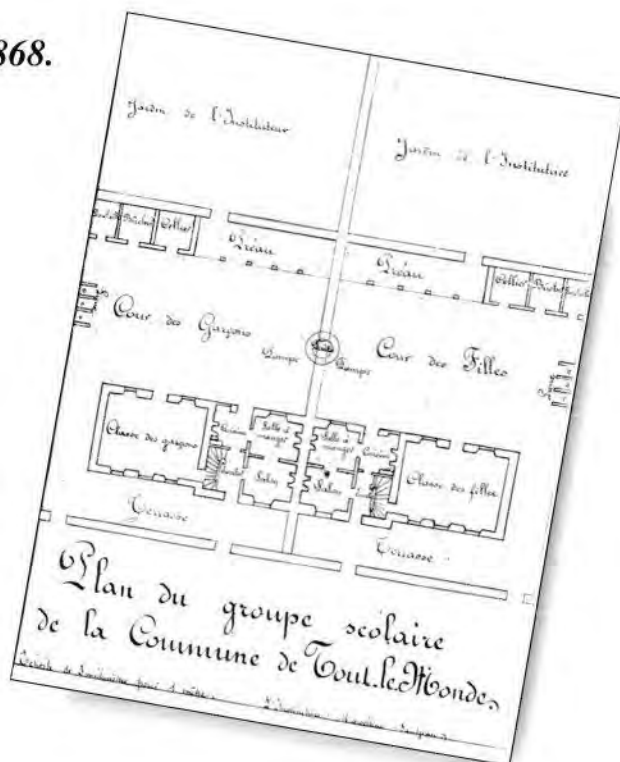 868.
Jardin de l'Instituteur
Jardin de l'Institutrice
Bûcher Cellier
Préau
Préau
Cellier Bûcher
Cour des Garçons
Puits
Cour des Filles
Pompe Pompe
Classe des garçons
Cuisine
Salle à manger
Salle à manger
Cuisine
Classe des filles
Salon
Salon
Terrasse
Terrasse
Plan du groupe scolaire
de la Commune de Tout-le-Monde